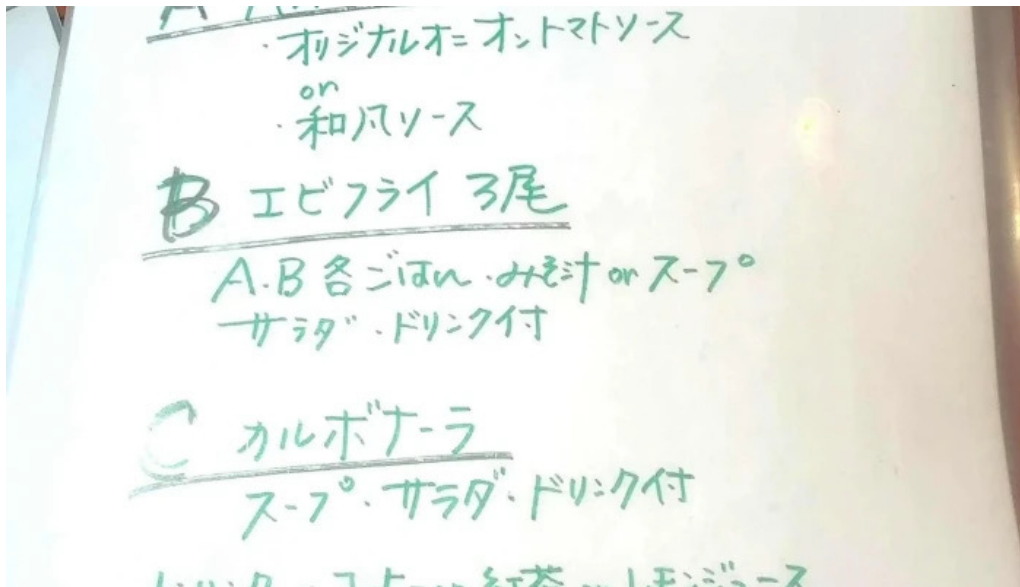 A
・オリジナルオニオントマトソース
or
・和風ソース
B エビフライ 3尾
A.B 各ごはん・みそ汁 or スープ
サラダ・ドリンク付
C カルボナーラ
スープ・サラダ・ドリンク付
ドリンク 紅茶 レモンジュース